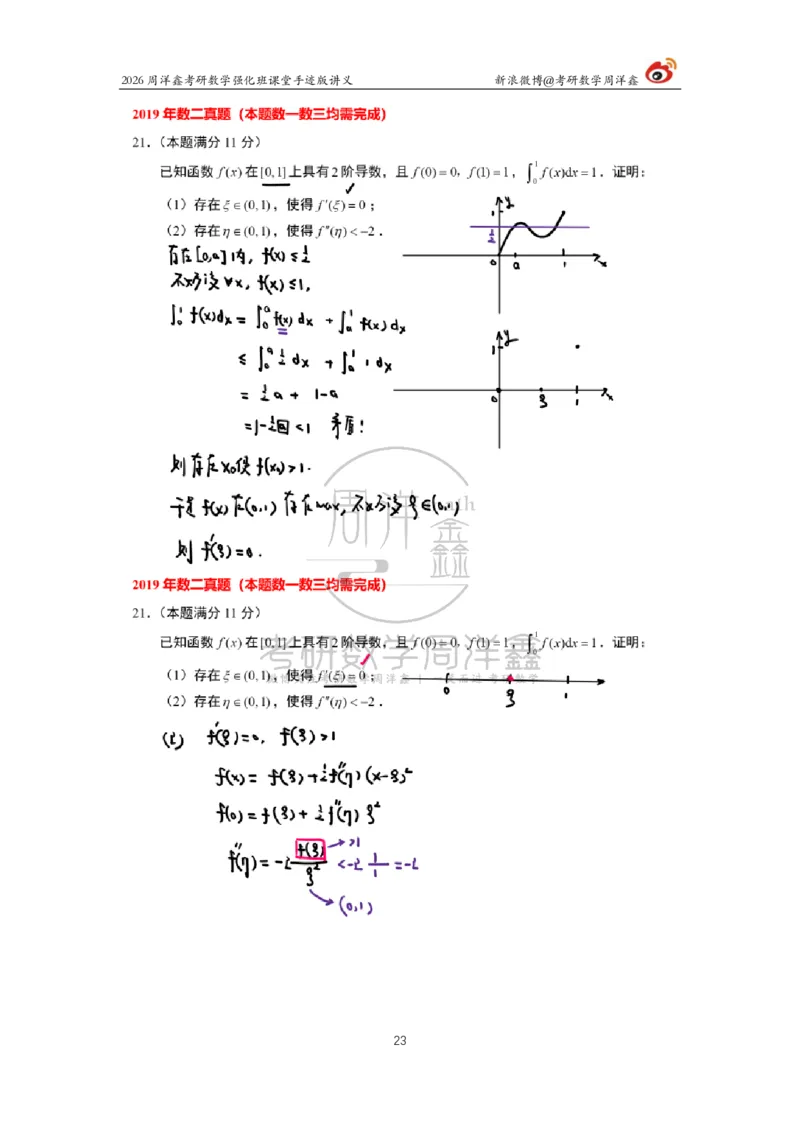 2026 周洋鑫考研数学强化班课堂手迹版讲义 新浪微博@考研数学周洋鑫
2019 年数二真题（本题数一数三均需完成）
21．（本题满分 11 分）
已知函数 f(x) 在 [0,1] 上具有 2 阶导数，且 f(0)=0，f(1)=1，∫₀¹ f(x)dx=1．证明：
（1）存在 ξ∈(0,1)，使得 f′(ξ)=0；
（2）存在 η∈(0,1)，使得 f″(η)<−2．
存在[0,a]内，f(x)≤1/2
不妨设∀x，f(x)≤1，
∫₀¹ f(x)dx = ∫₀ᵃ f(x) dx + ∫ₐ¹ f(x)dx
≤ ∫₀ᵃ 1/2 dx + ∫ₐ¹ 1 dx
= 1/2 a + 1-a
=1-1/2 a <1 矛盾!
则存在x₀使f(x₀)>1.
于是 f(x)在(0,1)存在max，不妨设ξ∈(0,1)
则 f′(ξ)=0.
y
1
1/2
0 a 1 x
y
1
0 ξ 1 x
周洋鑫
math
2019 年数二真题（本题数一数三均需完成）
21．（本题满分 11 分）
已知函数 f(x) 在 [0,1] 上具有 2 阶导数，且 f(0)=0，f(1)=1，∫₀¹ f(x)dx=1．证明：
考研数学周洋鑫
（1）存在 ξ∈(0,1)，使得 f′(ξ)=0；
（2）存在 η∈(0,1)，使得 f″(η)<−2．
0 ξ 1
f′(ξ)=0, f(ξ)>1
f(x)= f(ξ)+1/2 f″(η)(x-ξ)²
f(0)=f(ξ)+ 1/2 f″(η) ξ²
f″(η)=-2 f(ξ)/ξ² <-2 1/1 =-2
→>1
→(0,1)
23